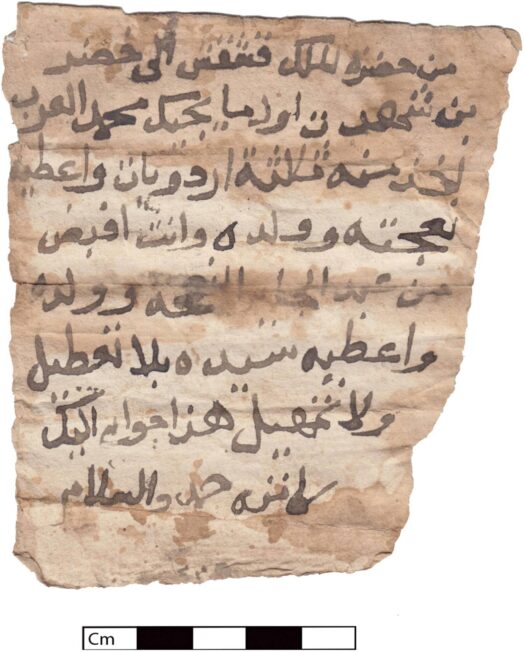 من حضره الملك قشقش الى خضر
بن شهدت اول ما يجيك محمد العرب
تاخذ منه ثلثة اردويات واعطيه
نعجته وولده وانت اقبض
من عبد الجابر النعجه وولده
واعطيه سيده بلا تعطيل
ولا تمهيل هذا جواب اليك
حد والسلام
Cm